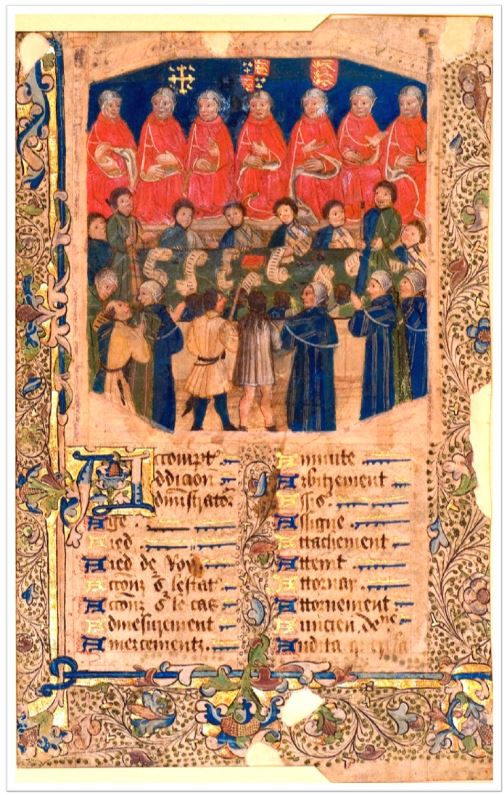 Accompt
ddicion
dministrator
Age
Aied
Aied de Roy
Accon s lestat
Accon s le cas
Amesurement
Amercementz
Annuite
Arbitrement
Assigne
Attachement
Atteint
Attornay
Attornement
Auncien
Audita